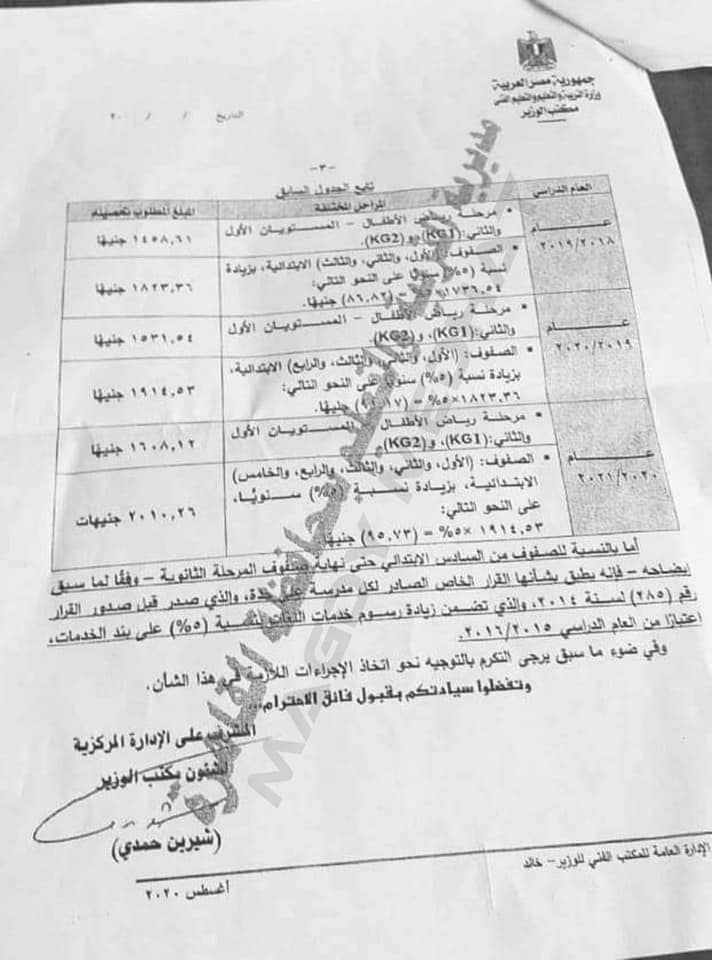 جمهورية مصر العربية
وزارة التربية والتعليم والتعليم الفني
مكتب الوزير
التاريخ / / ٢٠
-٣-
تابع الجدول السابق
العام الدراسي
المراحل المختلفة
المبلغ المطلوب تحصيله
عام
٢٠١٩/٢٠١٨
• مرحلة رياض الأطفال – المستويان الأول
والثاني: (KG1)، و(KG2).
١٤٥٨,٦١ جنيها
• الصفوف: (الأول، والثاني، والثالث) الابتدائية، بزيادة
نسبة (٥%) سنويا على النحو التالي:
١٧٣٦,٥٤ (٨٦,٨٢) جنيها.
١٨٢٣,٣٦ جنيها
عام
٢٠٢٠/٢٠١٩
• مرحلة رياض الأطفال – المستويان الأول
والثاني: (KG1)، و(KG2).
١٥٣١,٥٤ جنيها
• الصفوف: (الأول، والثاني، والثالث، والرابع) الابتدائية،
بزيادة نسبة (٥%) سنويا على النحو التالي:
١٨٢٣,٣٦×٥% = جنيها.
١٩١٤,٥٣ جنيها
عام
٢٠٢١/٢٠٢٠
• مرحلة رياض الأطفال – المستويان الأول
والثاني: (KG1)، و(KG2).
١٦٠٨,١٢ جنيها
• الصفوف: (الأول، والثاني، والثالث، والرابع، والخامس)
الابتدائية، بزيادة نسبة (٥%) سنويا،
على النحو التالي:
١٩١٤,٥٣ ×٥% = (٩٥,٧٣) جنيها.
٢٠١٠,٢٦ جنيهات
أما بالنسبة للصفوف من السادس الابتدائي حتى نهاية صفوف المرحلة الثانوية – وفقا لما سبق
إيضاحه – فإنه يطبق بشأنها القرار الخاص الصادر لكل مدرسة على حدة، والذي صدر قبل صدور القرار
رقم (٢٨٥) لسنة ٢٠١٤، والذي تضمن زيادة رسوم خدمات اللغات بنسبة (٥%) على بند الخدمات،
اعتبارا من العام الدراسي ٢٠١٦/٢٠١٥.
وفي ضوء ما سبق يرجى التكرم بالتوجيه نحو اتخاذ الإجراءات اللازمة في هذا الشأن.
وتفضلوا سيادتكم بقبول فائق الاحترام،،،
المشرف على الإدارة المركزية
لشئون مكتب الوزير
(شيرين حمدي)
الإدارة العامة للمكتب الفني للوزير- خالد
أغسطس ٢٠٢٠
مديرية التربية والتعليم بمحافظة القاهرة